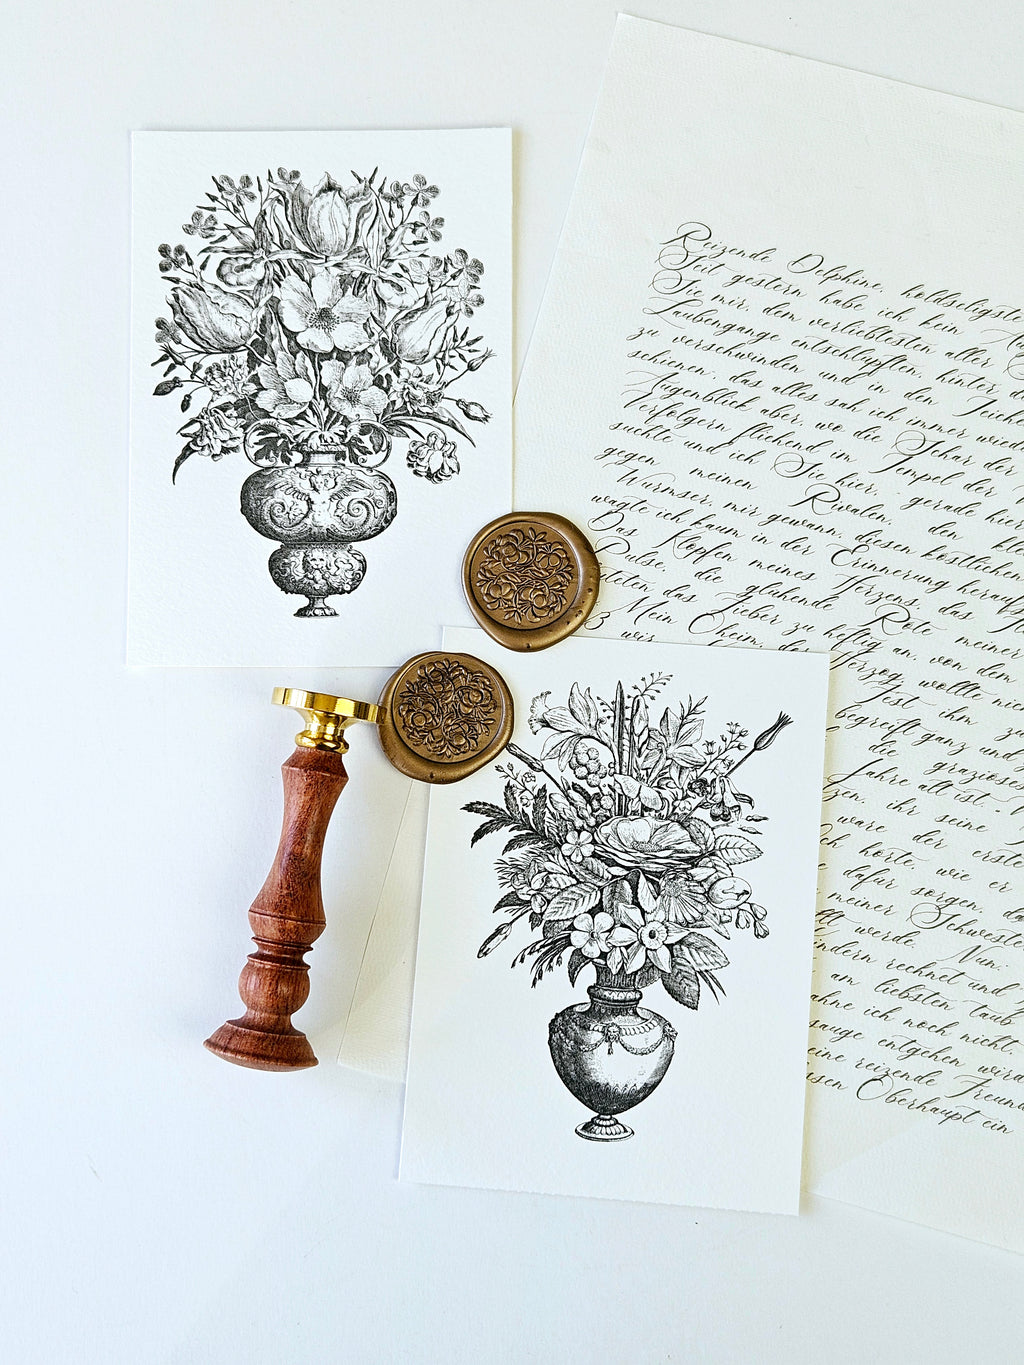 Reizende Delphine, holdseligste
Seit gestern habe ich kein
Sie mir, dem verliebtesten aller
Laubengange entschlüpften, hinter
zu verschwinden und in den Teiche
schienen, das alles sah ich immer wied
Augenblick aber, wo die Schar der
Verfolgern fliehend im Tempel der
suchte und ich Sie hier, gerade hier
gegen meinen Rivalen, den kle
Wurmser, mir gewann, diesen köstlichen
wagte ich kaum in der Erinnerung herauf
Das Klopfen meines Herzens, das
Pulse, die glühende Röte meiner
teten das Fieber zu heftig an, von dem
Mein Oheim, der Herzog, wollte nic
wir
Jest ihm zu
begreift ganz und
die graziöses
Jahre alt ist.
zen, ihr seine
ware der erste
ich hörte, wie er
dafür sorgen, da
meiner Schwester
werde. Nun:
indern rechnet und
am liebsten taub
ahne ich noch nicht,
auge entgehen wird
eine reizende Freun
Oberhaupt ein